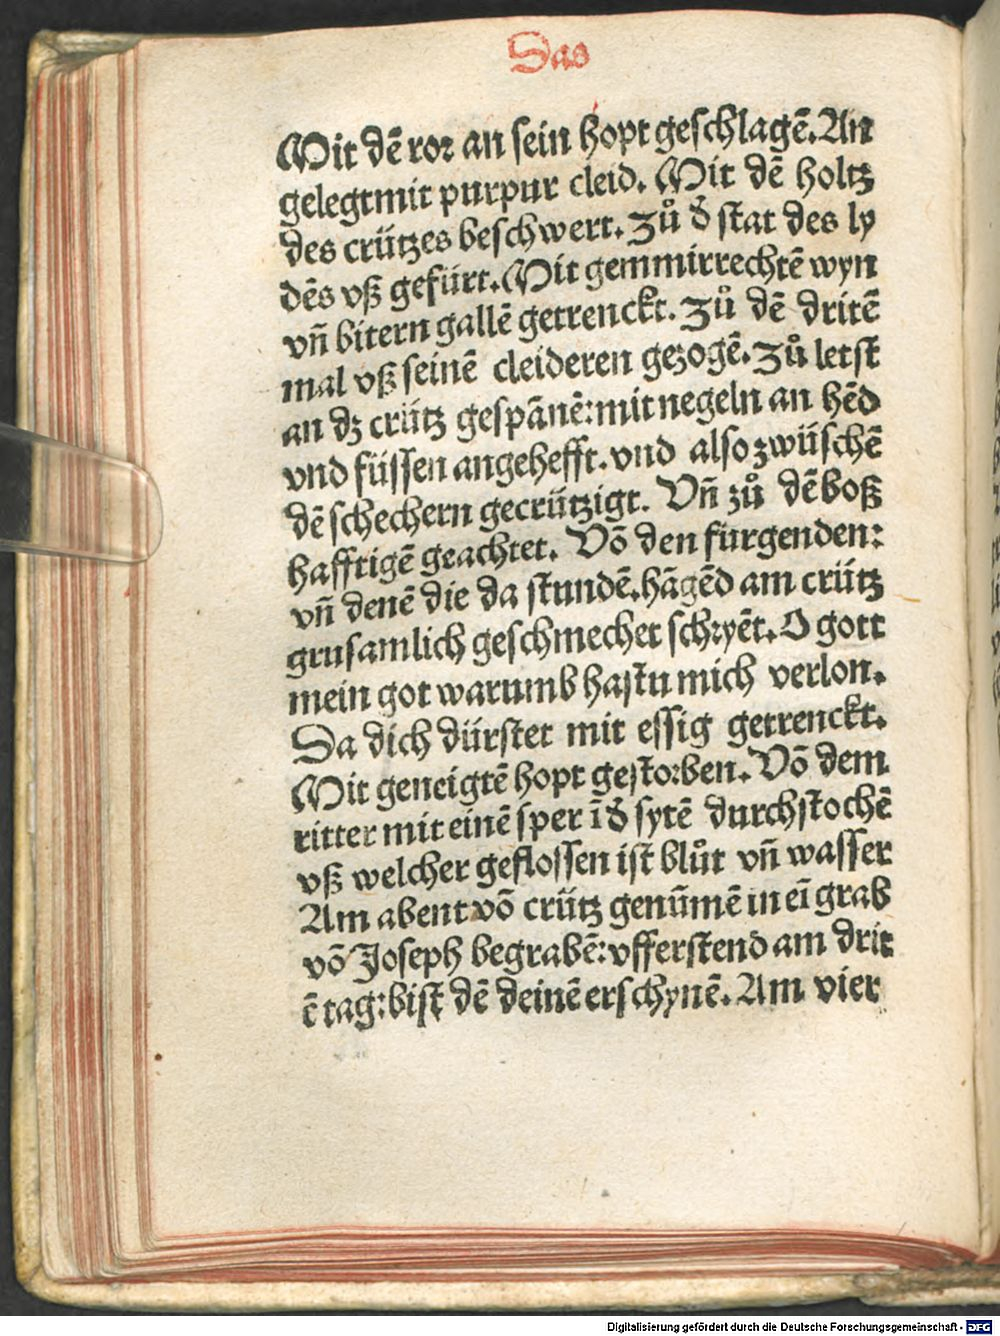 Das
Mit dē ror an sein hopt geschlagē. An
gelegt mit purpur cleid. Mit dē holtz
des crützes beschwert. Zů d̕ stat des ly
dēs vß gefürt. Mit gemmirrechtē wyn
vn̄ bitern gallē getrenckt. Zů dē dritē
mal vß seinē cleideren gezogē. Zů letst
an dz crütz gespānē: mit negeln an hēd
vnd füssen angehefft. vnd also zwüschē
dē schechern gecrützigt. Vn̄ zů dē boß
hafftigē geachtet. Vō den fürgenden:
vn̄ denē die da stundē. hāgēd am crütz
grusamlich geschmechet schryēt. O gott
mein got warumb hastu mich verlon.
Da dich dürstet mit essig getrenckt.
Mit geneigtē hopt gestorben. Vō dem
ritter mit einē sper ī d̕ sytē durchstochē
vß welcher geflossen ist blůt vn̄ wasser
Am abent vō crütz genūmē in eī grab
vō Joseph begrabē: vfferstend am drit
ē tag: bist dē deinē erschynē. Am vier
Digitalisierung gefördert durch die Deutsche Forschungsgemeinschaft - DFG